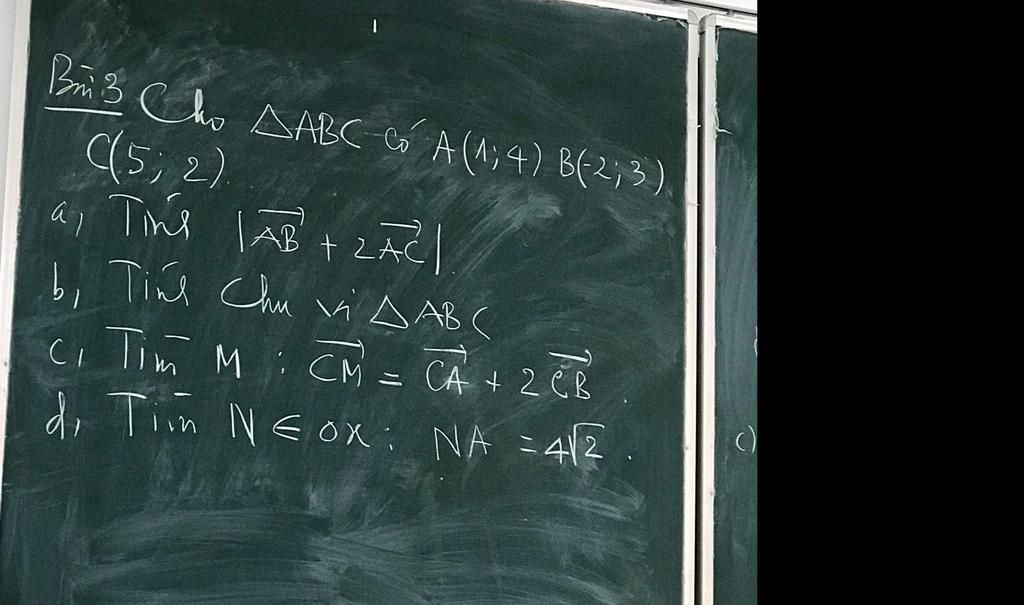 Bài 3 Cho △ABC có A(1;4) B(-2;3)
C(5;2).
a, Tính |\overrightarrow{AB} + 2\overrightarrow{AC}|.
b, Tính chu vi △ABC
c, Tìm M : \overrightarrow{CM} = \overrightarrow{CA} + 2\overrightarrow{CB}.
d, Tìm N ∈ OX : NA = 4√2.
c)